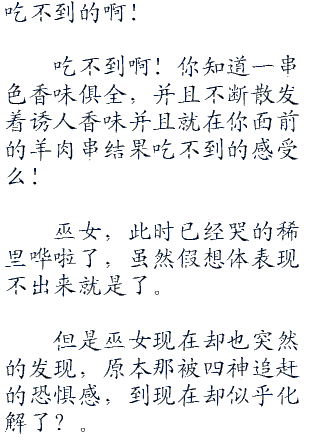 吃不到的啊！
吃不到啊！你知道一串
色香味俱全，并且不断散发
着诱人香味并且就在你面前
的羊肉串结果吃不到的感受
么！
巫女，此时已经哭的稀
里哗啦了，虽然假想体表现
不出来就是了。
但是巫女现在却也突然
的发现，原本那被四神追赶
的恐惧感，到现在却似乎化
解了？。